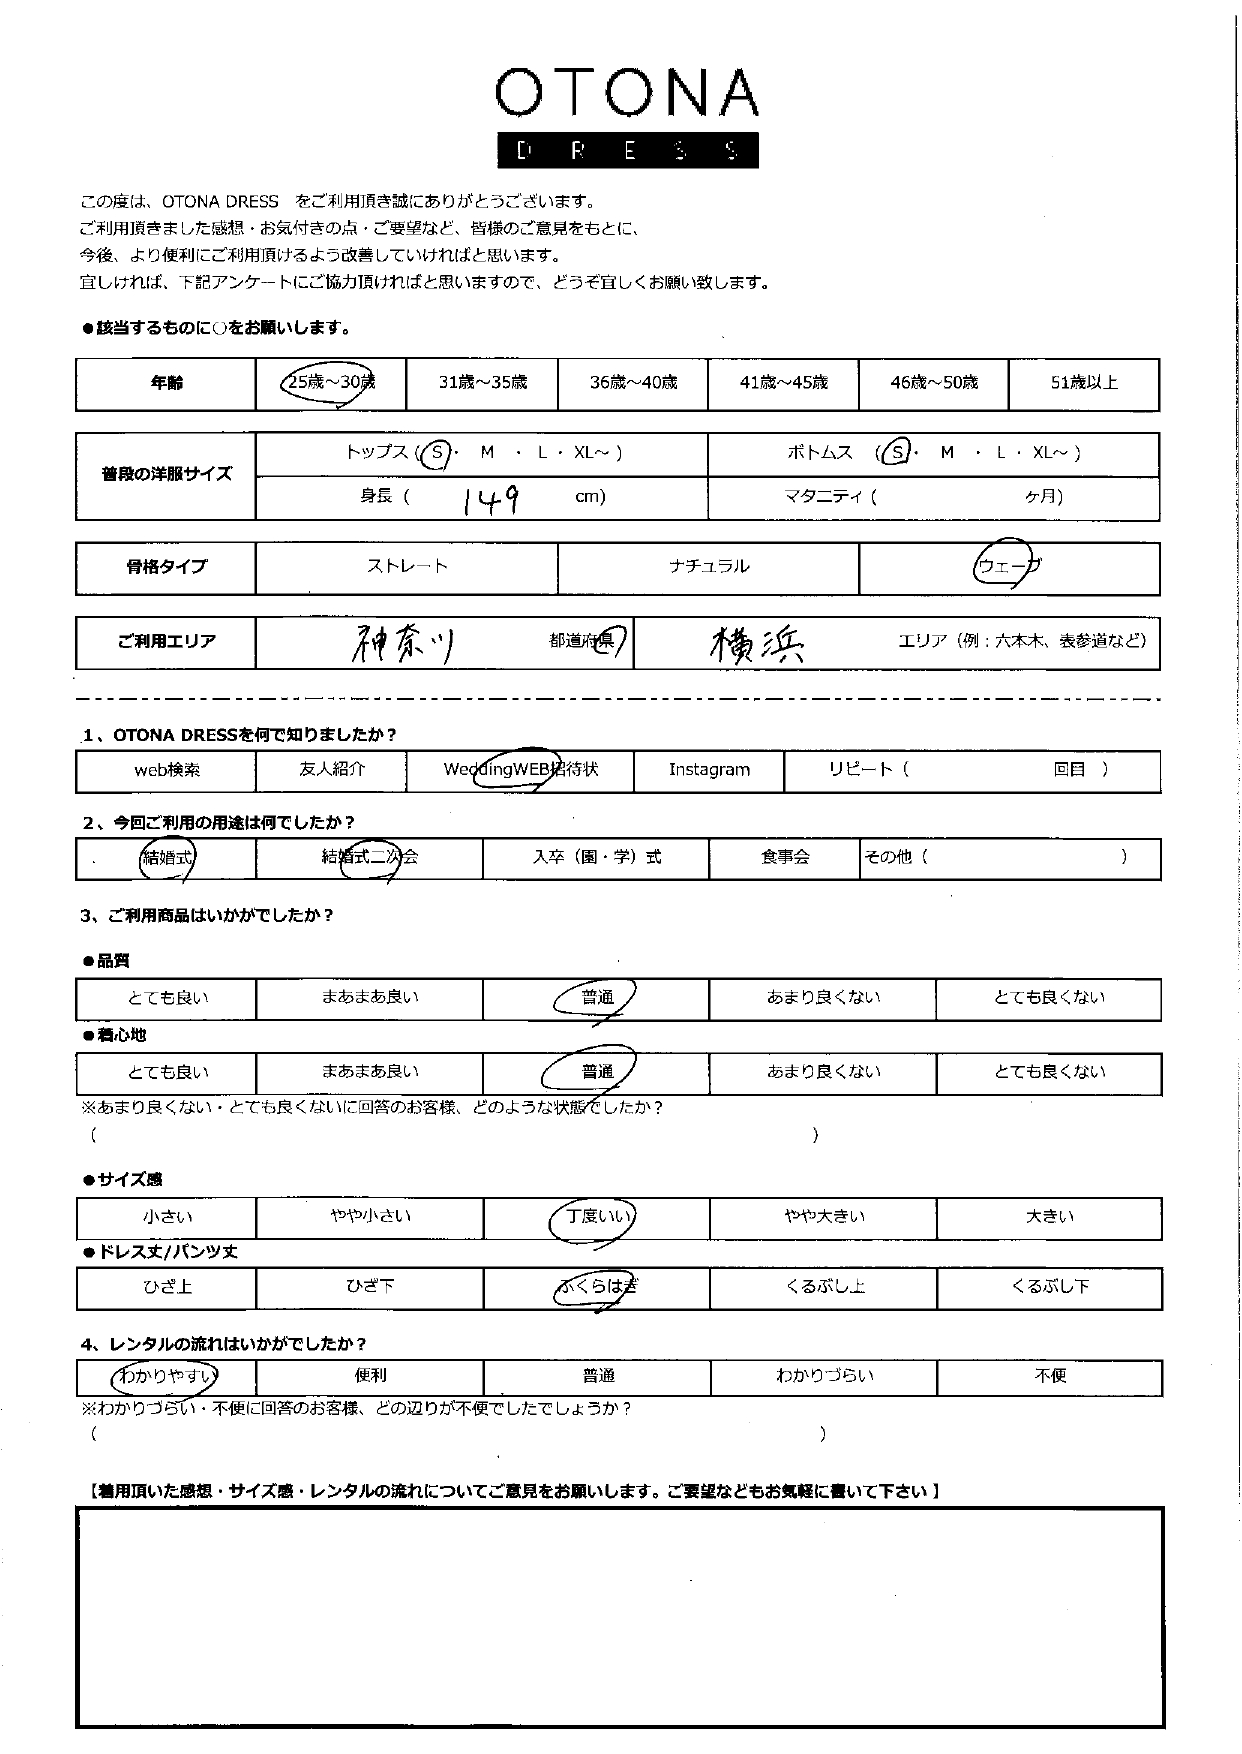 OTONA
DRESS
この度は、OTONA DRESS をご利用頂き誠にありがとうございます。
ご利用頂きました感想・お気付きの点・ご要望など、皆様のご意見をもとに、
今後、より便利にご利用頂けるよう改善していければと思います。
宜しければ、下記アンケートにご協力頂ければと思いますので、どうぞ宜しくお願い致します。
●該当するものに○をお願いします。
年齢 25歳～30歳 31歳～35歳 36歳～40歳 41歳～45歳 46歳～50歳 51歳以上
普段の洋服サイズ トップス (S・ M ・ L・ XL～ ) ボトムス (S・ M ・ L・ XL～ )
身長 ( 149 cm) マタニティ ( ヶ月)
骨格タイプ ストレート ナチュラル ウェーブ
ご利用エリア 神奈川 都道府県 横浜 エリア（例：六本木、表参道など）
1、OTONA DRESSを何で知りましたか？
web検索 友人紹介 WeddingWEB招待状 Instagram リピート（ 回目 ）
2、今回ご利用の用途は何でしたか？
結婚式 結婚式二次会 入卒（園・学）式 食事会 その他（ ）
3、ご利用商品はいかがでしたか？
●品質
とても良い まあまあ良い 普通 あまり良くない とても良くない
●着心地
とても良い まあまあ良い 普通 あまり良くない とても良くない
※あまり良くない・とても良くないに回答のお客様、どのような状態でしたか？
（ ）
●サイズ感
小さい やや小さい 丁度いい やや大きい 大きい
●ドレス丈/パンツ丈
ひざ上 ひざ下 ふくらはぎ くるぶし上 くるぶし下
4、レンタルの流れはいかがでしたか？
わかりやすい 便利 普通 わかりづらい 不便
※わかりづらい・不便に回答のお客様、どの辺りが不便でしたでしょうか？
（ ）
【着用頂いた感想・サイズ感・レンタルの流れについてご意見をお願いします。ご要望などもお気軽に書いて下さい】